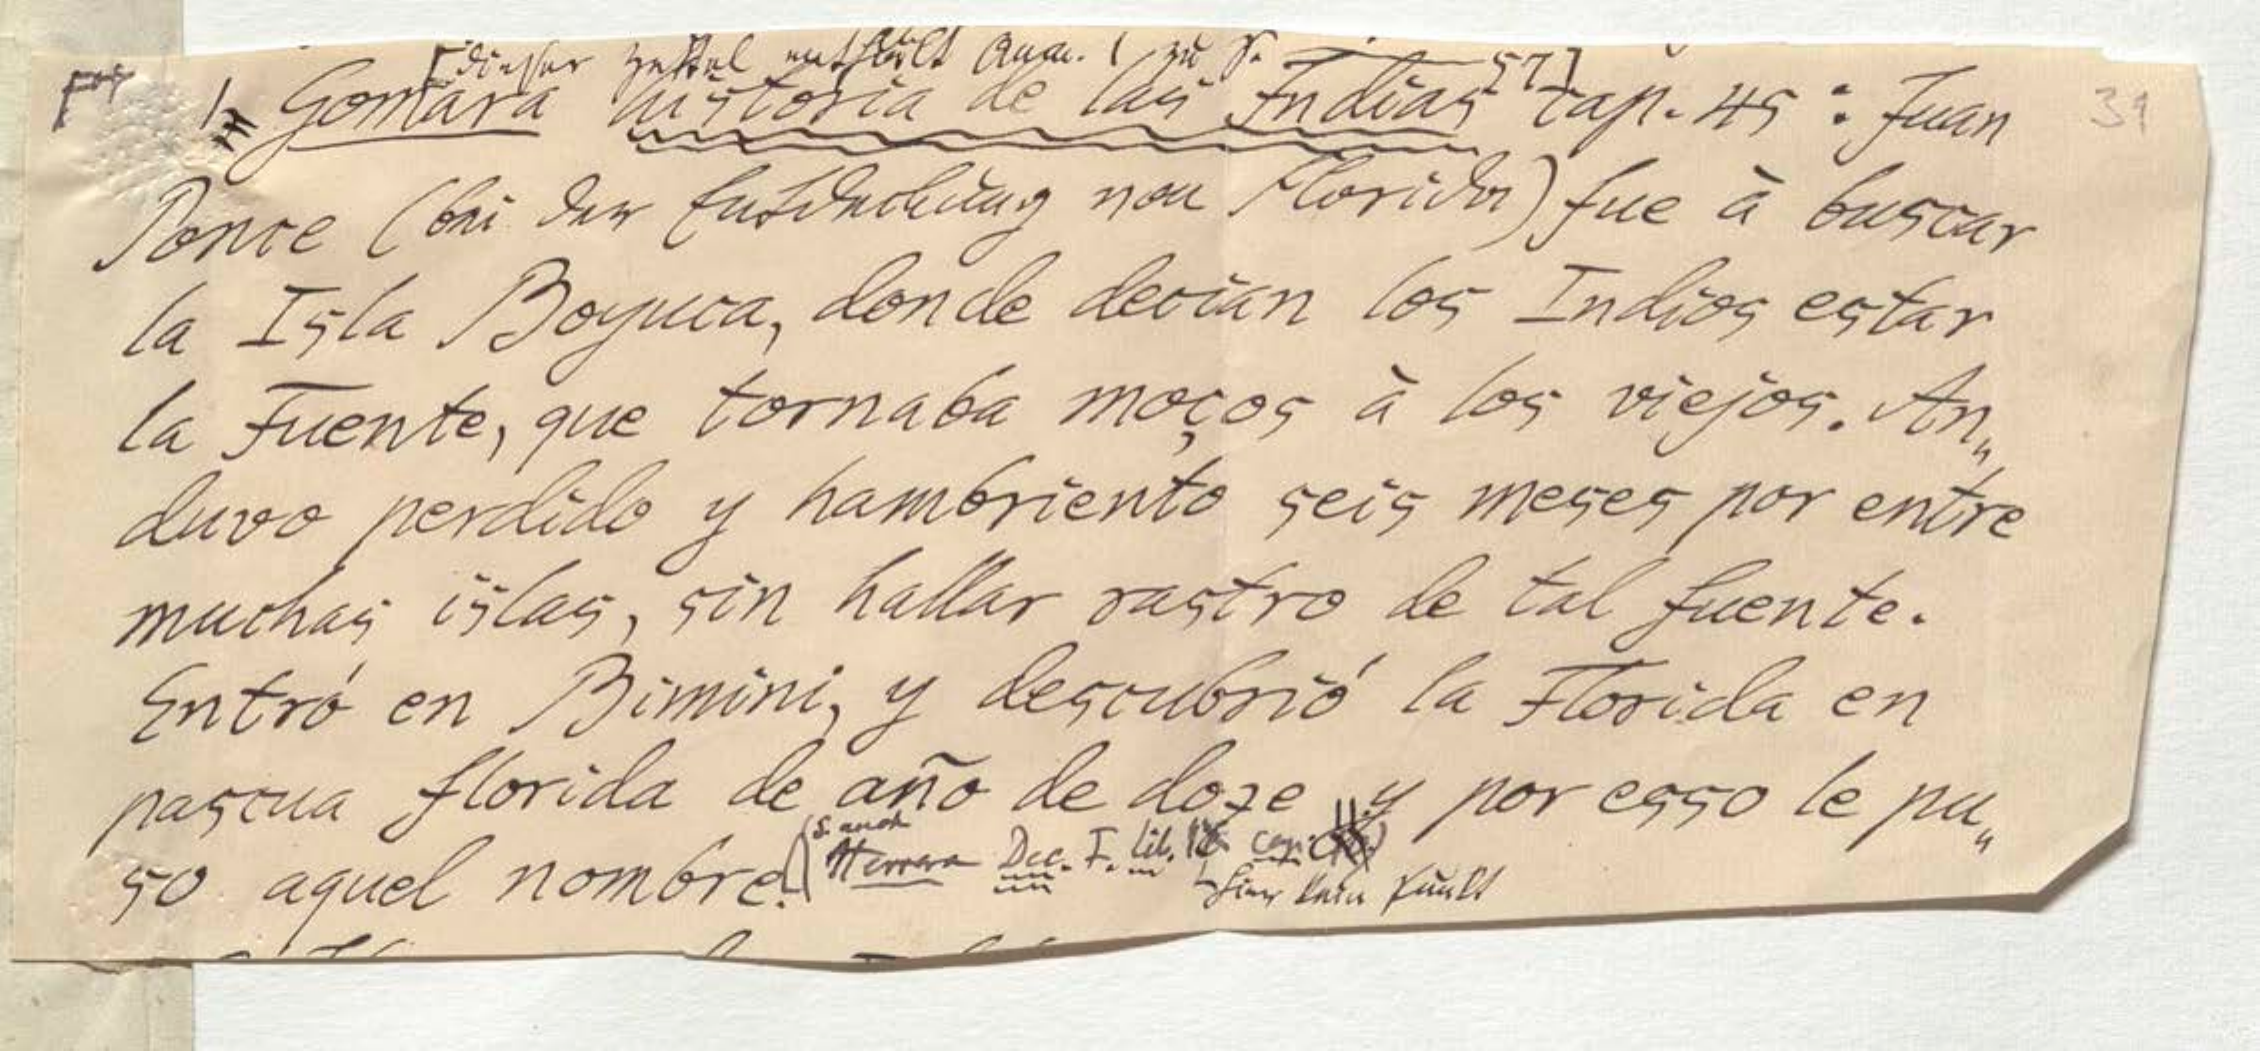 [dieser Zettel enthält Anm. 1 zu S. 57]
Gomara historia de las Indias cap. 45 : Juan
39
Ponce (bei der Entdeckung von Florida) fue à buscar
la Isla Boyuca, donde decian los Indios estar
la Fuente, que tornaba moços à los viejos. An„
duvo perdido y hambriento seis meses por entre
muchas islas, sin hallar rastro de tal fuente.
Entró en Bimini, y descubrió la Florida en
pascua florida de año de doze y por esso le pu„
so aquel nombre.
(s. auch
Herrera Dec. I. lib. cap.
hier kein Punkt